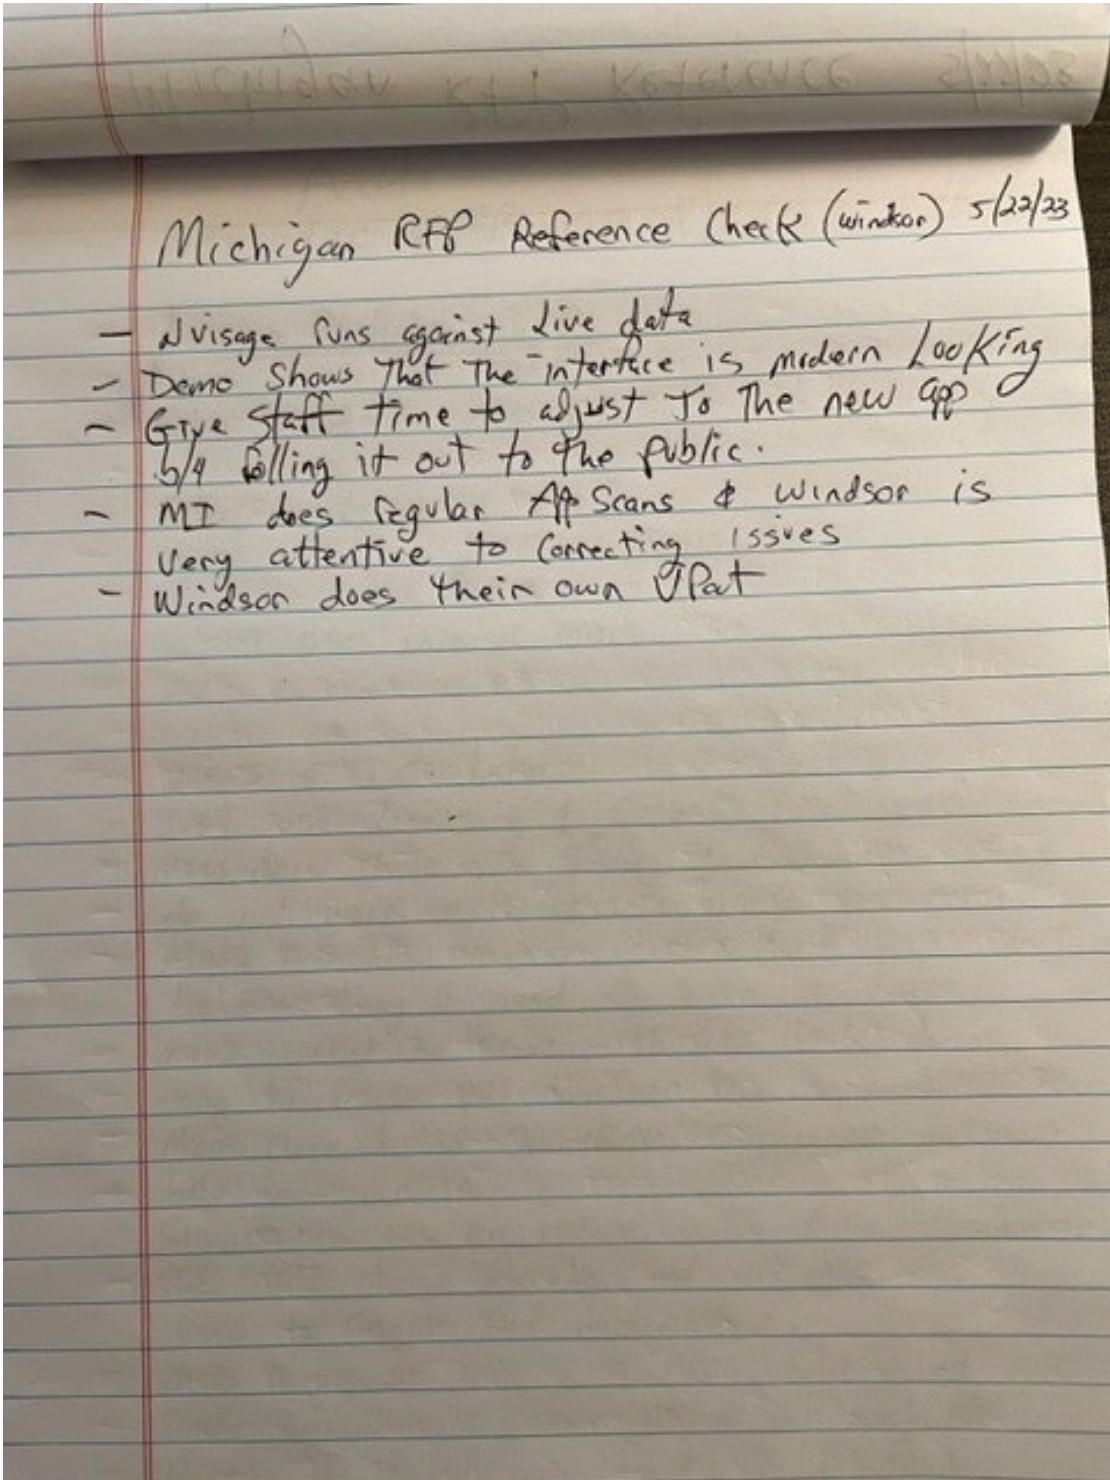 Michigan RFP Reference Check (windsor) 5/22/23
- Nvisage runs against Live data
- Demo Shows That The interface is modern Looking
- Give Staff time to adjust To The new app
b/4 rolling it out to the public.
- MI does regular App Scans & windsor is
very attentive to Correcting issues
- Windsor does their own VPat